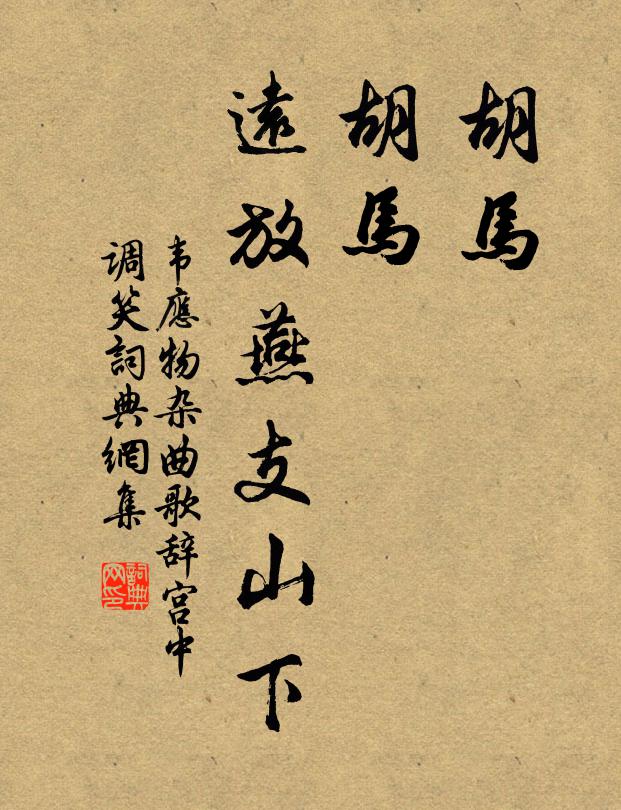 胡馬
胡馬
遠放燕支山下
韦應物杂曲歌辞宫中
调笑詞典網集
詞典网印